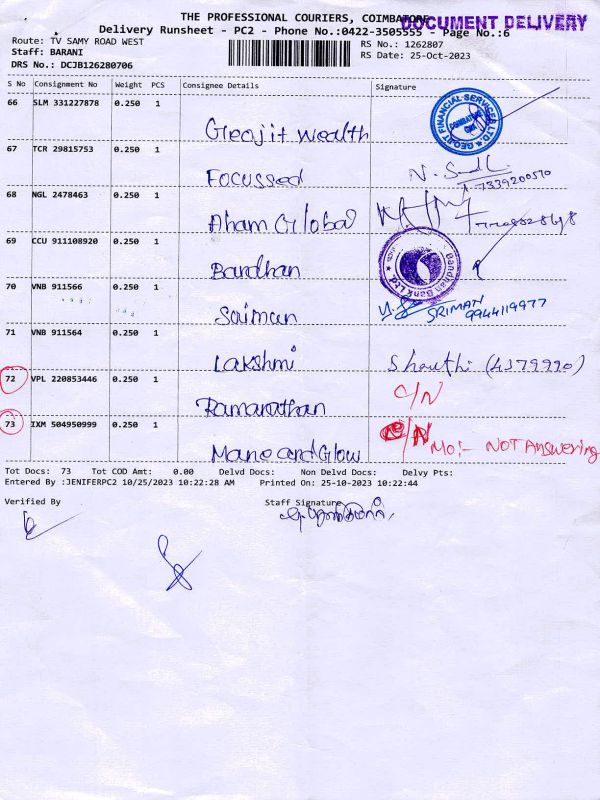 THE PROFESSIONAL COURIERS, COIMBATORE
DOCUMENT DELIVERY
Delivery Runsheet - PC2 - Phone No.:0422-3505555 - Page No.:6
Route: TV SAMY ROAD WEST
RS No.: 1262807
Staff: BARANI
RS Date: 25-Oct-2023
DRS No.: DCJB126280706
S No Consignment No Weight PCS Consignee Details Signature
66 SLM 331227878 0.250 1
Geojit wealth
67 TCR 29815753 0.250 1
Focussed
7339200570
68 NGL 2478463 0.250 1
Aham Global
69 CCU 911108920 0.250 1
Bandhan
Bandhan Bank Ltd.
70 VNB 911566 0.250 1
Sriman
SRIMAN
9944119977
71 VNB 911564 0.250 1
Lakshmi
Shanthi (4379990)
72 VPL 220853446 0.250 1
C/N
Ramanathan
73 IXM 504950999 0.250 1
Mane and Glow
Mo:- NOT Answering
Tot Docs: 73 Tot COD Amt: 0.00 Delvd Docs: Non Delvd Docs: Delvy Pts:
Entered By :JENIFERPC2 10/25/2023 10:22:28 AM Printed On: 25-10-2023 10:22:44
Verified By Staff Signature